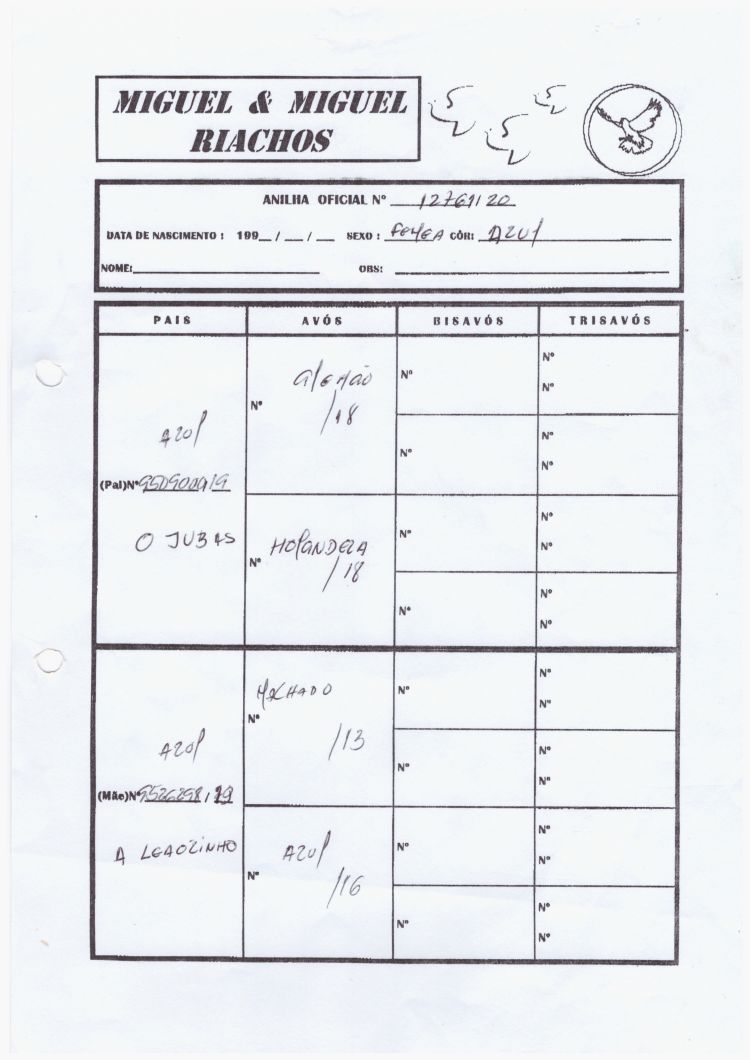 MIGUEL & MIGUEL
RIACHOS
ANILHA OFICIAL Nº
DATA DE NASCIMENTO : 199__ / __ / __ SEXO : FEMEA CÔR: AZUL
NOME: OBS:
PAIS AVÓS BISAVÓS TRISAVÓS
Alemão
/18
Nº
AZUL
(Pai)Nº
O JUBAS
HOLANDEZA
/18
Nº
Nº
Nº
Nº
Nº
Nº
Nº
Nº
Nº
Nº
Nº
Nº
Nº
MACHADO
Nº
/13
AZUL
(Mãe)Nº 9526298/19
A LEAOZINHO
AZUL
Nº
/16
Nº
Nº
Nº
Nº
Nº
Nº
Nº
Nº
Nº
Nº
Nº
Nº